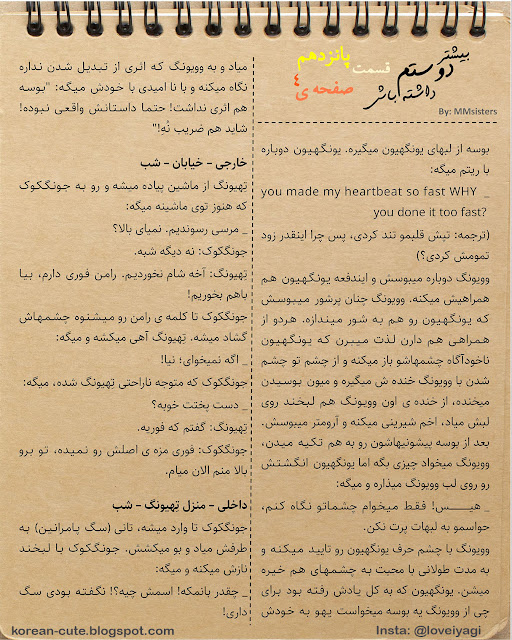 بیشتر
دوستم
داشته باش
قسمت پانزدهم
صفحه ی ۴
By: MMsisters
بوسه از لبهای یونگهیون میگیره. یونگهیون دوباره
با ریتم میگه:
_ you made my heartbeat so fast WHY
you done it too fast?
(ترجمه: تپش قلبمو تند کردی، پس چرا اینقدر زود
تمومش کردی؟)
وویونگ دوباره میبوسش و ایندفعه یونگهیون هم
همراهیش میکنه. وویونگ چنان پرشور میبوسش
که یونگهیون رو هم به شور میندازه. هردو از
همراهی هم دارن لذت میبرن که یونگهیون
ناخودآگاه چشمهاشو باز میکنه و از چشم تو چشم
شدن با وویونگ خنده ش میگیره و میون بوسیدن
میخنده، از خنده ی اون وویونگ هم لبخند روی
لبش میاد، اخم شیرینی میکنه و آرومتر میبوسش.
بعد از بوسه پیشونیهاشون رو به هم تکیه میدن،
وویونگ میخواد چیزی بگه اما یونگهیون انگشتش
رو روی لب وویونگ میذاره و میگه:
_ هیـــس! فقط میخوام چشماتو نگاه کنم،
حواسمو به لبهات پرت نکن.
وویونگ با چشم حرف یونگهیون رو تایید میکنه و
به مدت طولانی با محبت به چشمهای هم خیره
میشن. یونگهیون که به کل یادش رفته بود برای
چی از وویونگ یه بوسه میخواست یهو به خودش
میاد و به وویونگ که اثری از تبدیل شدن نداره
نگاه میکنه و با نا امیدی با خودش میگه: "بوسه
هم اثری نداشت! حتما داستانش واقعی نبوده!
شاید هم ضریب نُه!"
خارجی – خیابان – شب
تِهیونگ از ماشین پیاده میشه و رو به جونگکوک
که هنوز توی ماشینه میگه:
_ مرسی رسوندیم. نمیای بالا؟
جونگکوک: نه دیگه شبه.
تِهیونگ: آخه شام نخوردیم. رامن فوری دارم، بیا
باهم بخوریم!
جونگکوک تا کلمه ی رامن رو میشنوه چشمهاش
گشاد میشه. تِهیونگ آهی میکشه و میگه:
_ اگه نمیخوای؛ نیا!
جونگکوک که متوجه ناراحتی تِهیونگ شده، میگه:
_ دست پختت خوبه؟
تِهیونگ: گفتم که فوریه.
جونگکوک: فوری مزه ی اصلش رو نمیده، تو برو
بالا منم الان میام.
داخلی – منزل تِهیونگ – شب
جونگکوک تا وارد میشه، تانی (سگ پامرانین) به
طرفش میاد و بو میکشش. جونگکوک با لبخند
نازش میکنه و میگه:
_ چقدر بانمکه! اسمش چیه؟! نگفته بودی سگ
داری!
korean-cute.blogspot.com
Insta: @loveiyagi